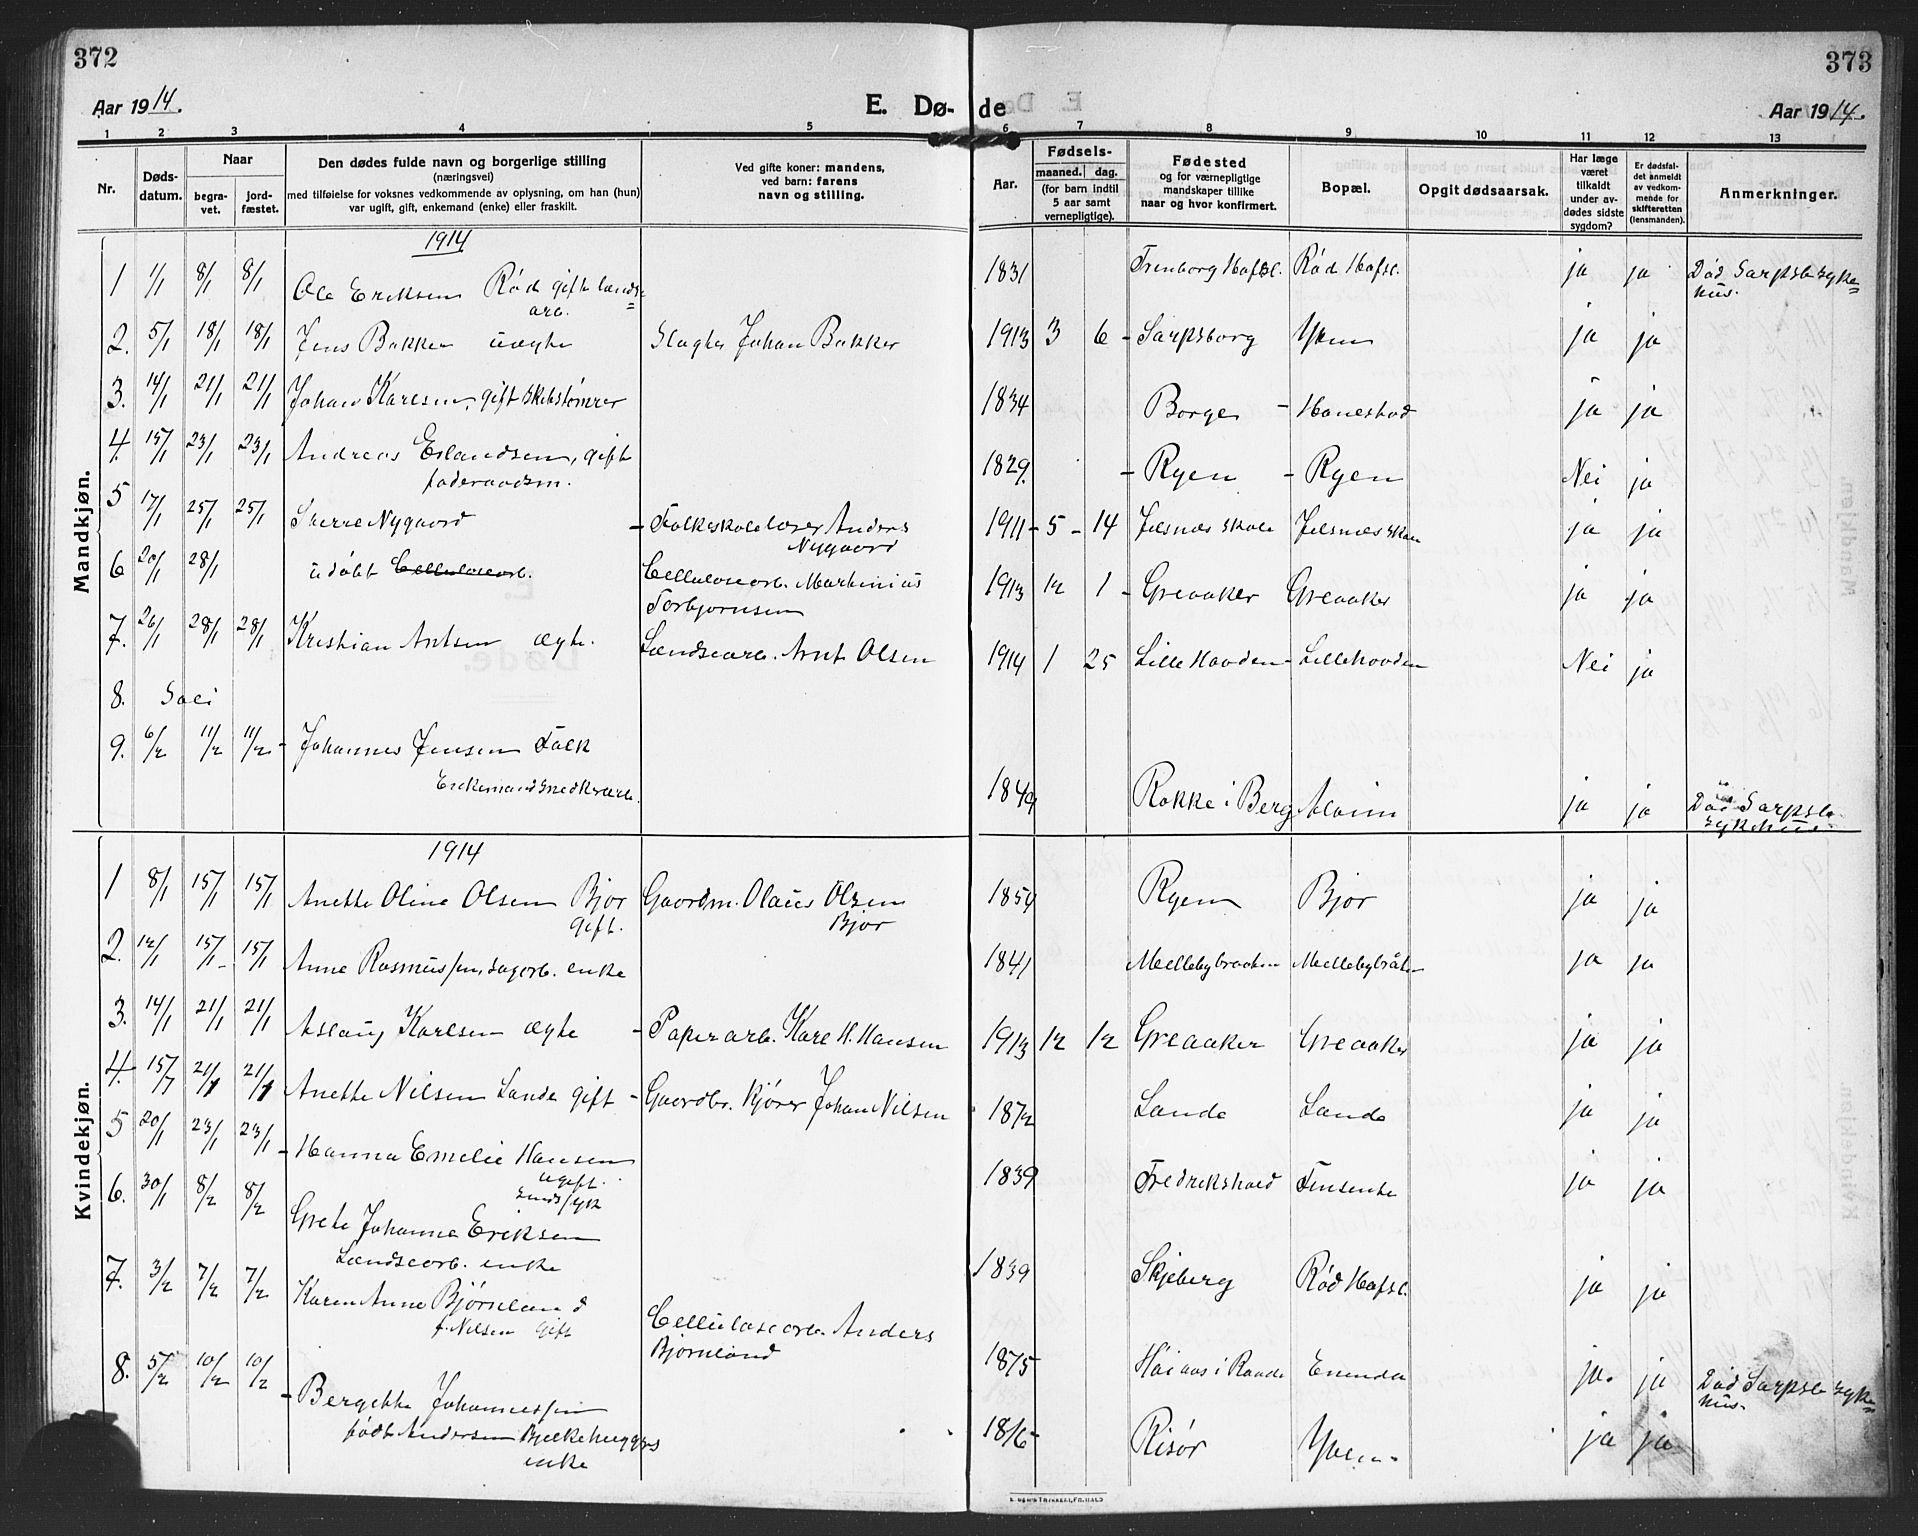 372
373
Aar 1914.
E. Dø-
de
Aar 1914.
1 2 3 4 5 6 7 8 9 10 11 12 13
Nr.
Døds-
datum.
Naar
begra-
vet.
jord-
fæstet.
Den dødes fulde navn og borgerlige stilling
(næringsvei)
med tilføielse for voksnes vedkommende av oplysning, om han (hun)
var ugift, gift, enkemand (enke) eller fraskilt.
Ved gifte koner: mandens,
ved barn: farens
navn og stilling.
Aar.
Fødsels-
maaned. dag.
(for barn indtil
5 aar samt
vernepligtige).
Fødested
og for værnepligtige
mandskaper tillike
naar og hvor konfirmert.
Bopæl.
Opgit dødsaarsak.
Har læge
været
tilkaldt
under av-
dødes sidste
sygdom?
Er dødsfal-
det anmeldt
av vedkom-
mende for
skifteretten
(lensmanden).
Anmerkninger.
Mandkjøn.
1914
1 1/1 8/1 8/1 Ole Eriksen Rød gift lands= 1831 Hafsl. Rød Hafsl. ja ja Død Sarpsb syke=
arb. hus.
2. 5/1 18/1 18/1 Jens Bakken uægte Slagter Johan Bakker 1913 3 6 - Sarpsborg Yven ja ja
3. 14/1 21/1 21/1 Johan Karlsen, gift skibstømrer 1834 Borge - Hanestad ja ja
4. 15/1 23/1 23/1 Andreas Erlandsen, gift 1829 - Ryen - Ryen Nei ja
føderaadsm.
5 17/1 25/1 25/1 Sverre Nygaard - Folkeskolelærer Anders 1911 - 5 - 14 Jelsnæs skole Jelsnæs skole ja ja
Nygaard
6 20/1 28/1 udøbt Cellulosearb. Cellulosearb. Martinius 1913 12 1 - Greaaker Greaaker ja ja
Torbjørnsen
7. 26/1 28/1 28/1 Kristian Antsen ægte. Landsearb. Arnt Olsen 1914 1 25 Lille Hovden - Lillehovden Nei ja
8.
9. 6/2 11/2 11/2 - Johannes Jensen Falk
Enkemand snedkerarb. 1849 Rokke i Berg Alvim ja ja Død Sarpsb.
sykehus.
Kvindekjøn.
1914
1 8/1 15/1 15/1 Anette Oline Olsen Bjør Gaardm. Olaus Olsen 1854 Ryen Bjør ja ja
gift. Bjør
2. 12/1 15/1 15/1 Anne Rasmussen, sagarb. enke 1841 Mellebybraaten Mellebybråten ja ja
3. 14/1 21/1 21/1 Aslaug Karlsen ægte - Papirarb. Karl H. Hansen 1913 12 12 Greaaker Greaaker ja ja
4. 15/1 21/1 21/1 Anette Nilsen Lande gift - Gaardbr. kjører Johan Nilsen 1872 Lande Lande ja ja
5 20/1 23/1 23/1 - Hanna Emelie Hansen 1839 Fredrikshald ja ja
ugift.
sinds/syk
6. 30/1 8/2 8/2 Grete Johanna Eriksen 1839 Skjeberg Rød Hafsl. ja ja
Landsearb. enke
7. 3/2 7/2 7/2 Karen Anne Bjørnland Cellulosearb. Anders
f. Nilsen gift Bjørnland 1875 i Raade Enenda ja. ja Død Sarpsb syke=
hus.
8. 5/2 10/2 10/2 - Bergitte Johannessen 1816 - Risør Yven - ja ja
født Andersen Bjelkehuggers
enke